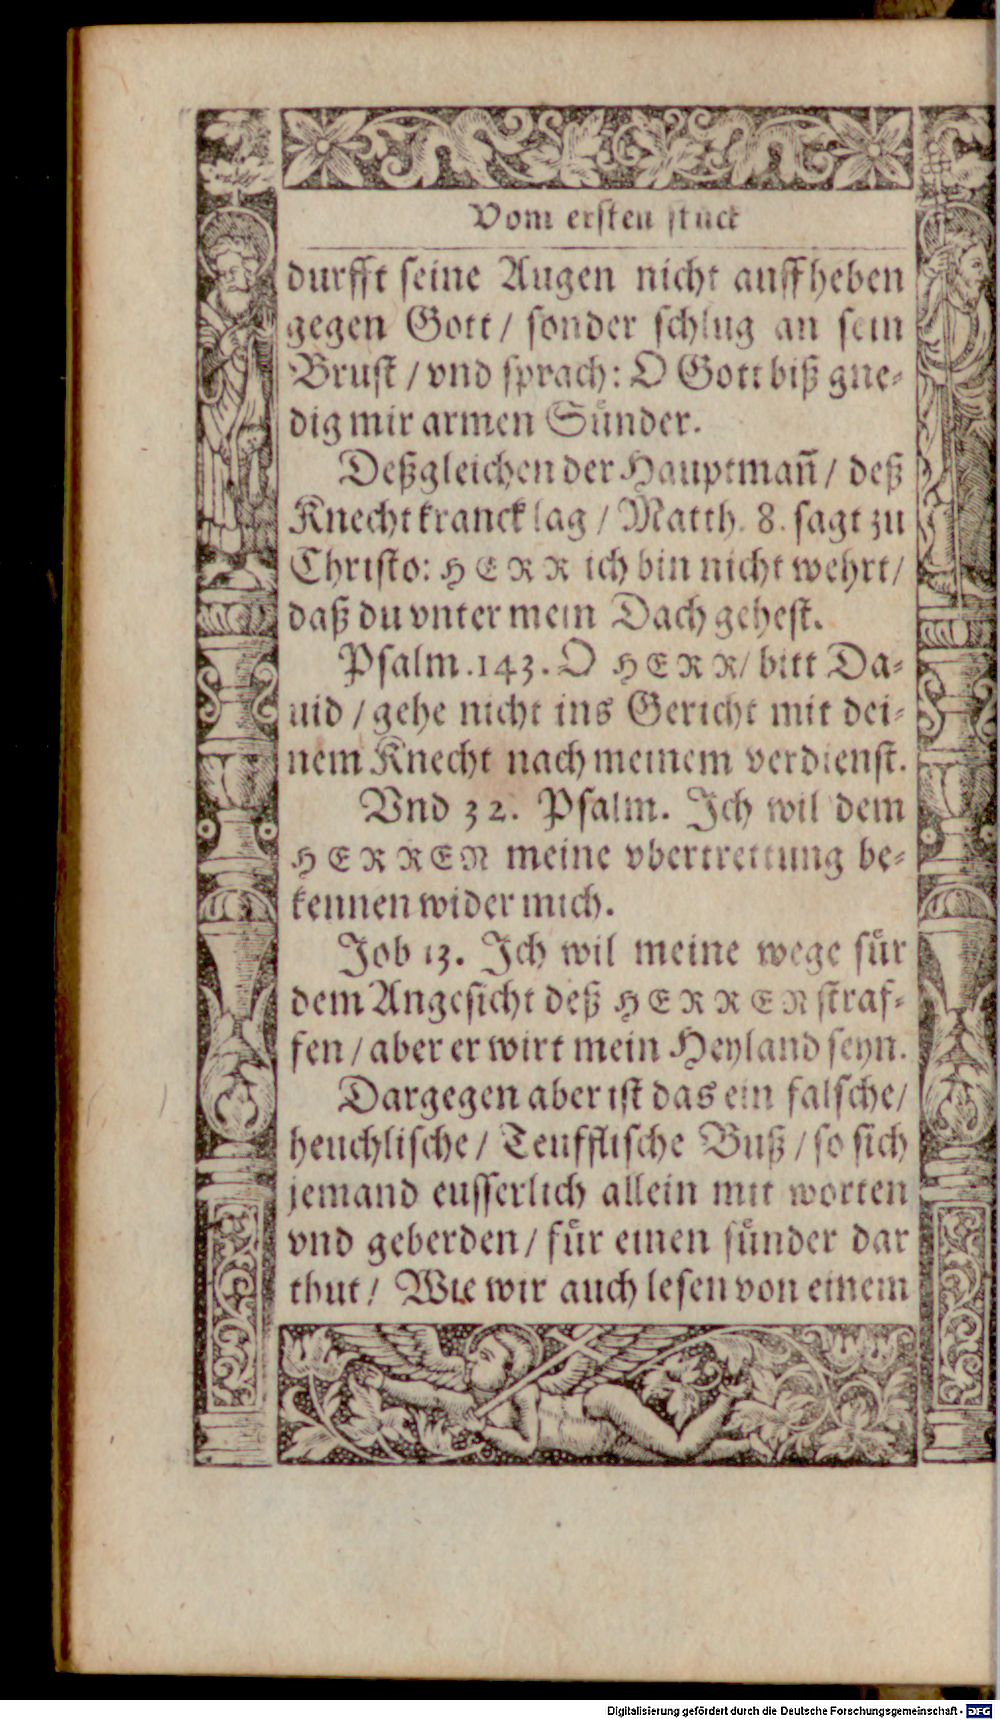 Vom ersten stuck
durfft seine Augen nicht auffheben
gegen Gott / sonder schlug an sein
Brust / vnd sprach: O Gott biß gne⸗
dig mir armen Suͤnder.
Deßgleichen der Hauptmañ / deß
Knecht kranck lag / Matth. 8. sagt zu
Christo: HERR ich bin nicht wehrt /
daß du vnter mein Dach gehest.
Psalm. 143. O HERR / bitt Da⸗
uid / gehe nicht ins Gericht mit dei⸗
nem Knecht nach meinem verdienst.
Vnd 32. Psalm. Ich wil dem
HERREN meine vbertrettung be⸗
kennen wider mich.
Job 13. Ich wil meine wege fuͤr
dem Angesicht deß HERREN straf⸗
fen / aber er wirt mein Heyland seyn.
Dargegen aber ist das ein falsche /
heuchlische / Teufflische Buß / so sich
jemand eusserlich allein mit worten
vnd geberden / fuͤr einen suͤnder dar
thut / Wie wir auch lesen von einem
Digitalisierung gefördert durch die Deutsche Forschungsgemeinschaft - DFG